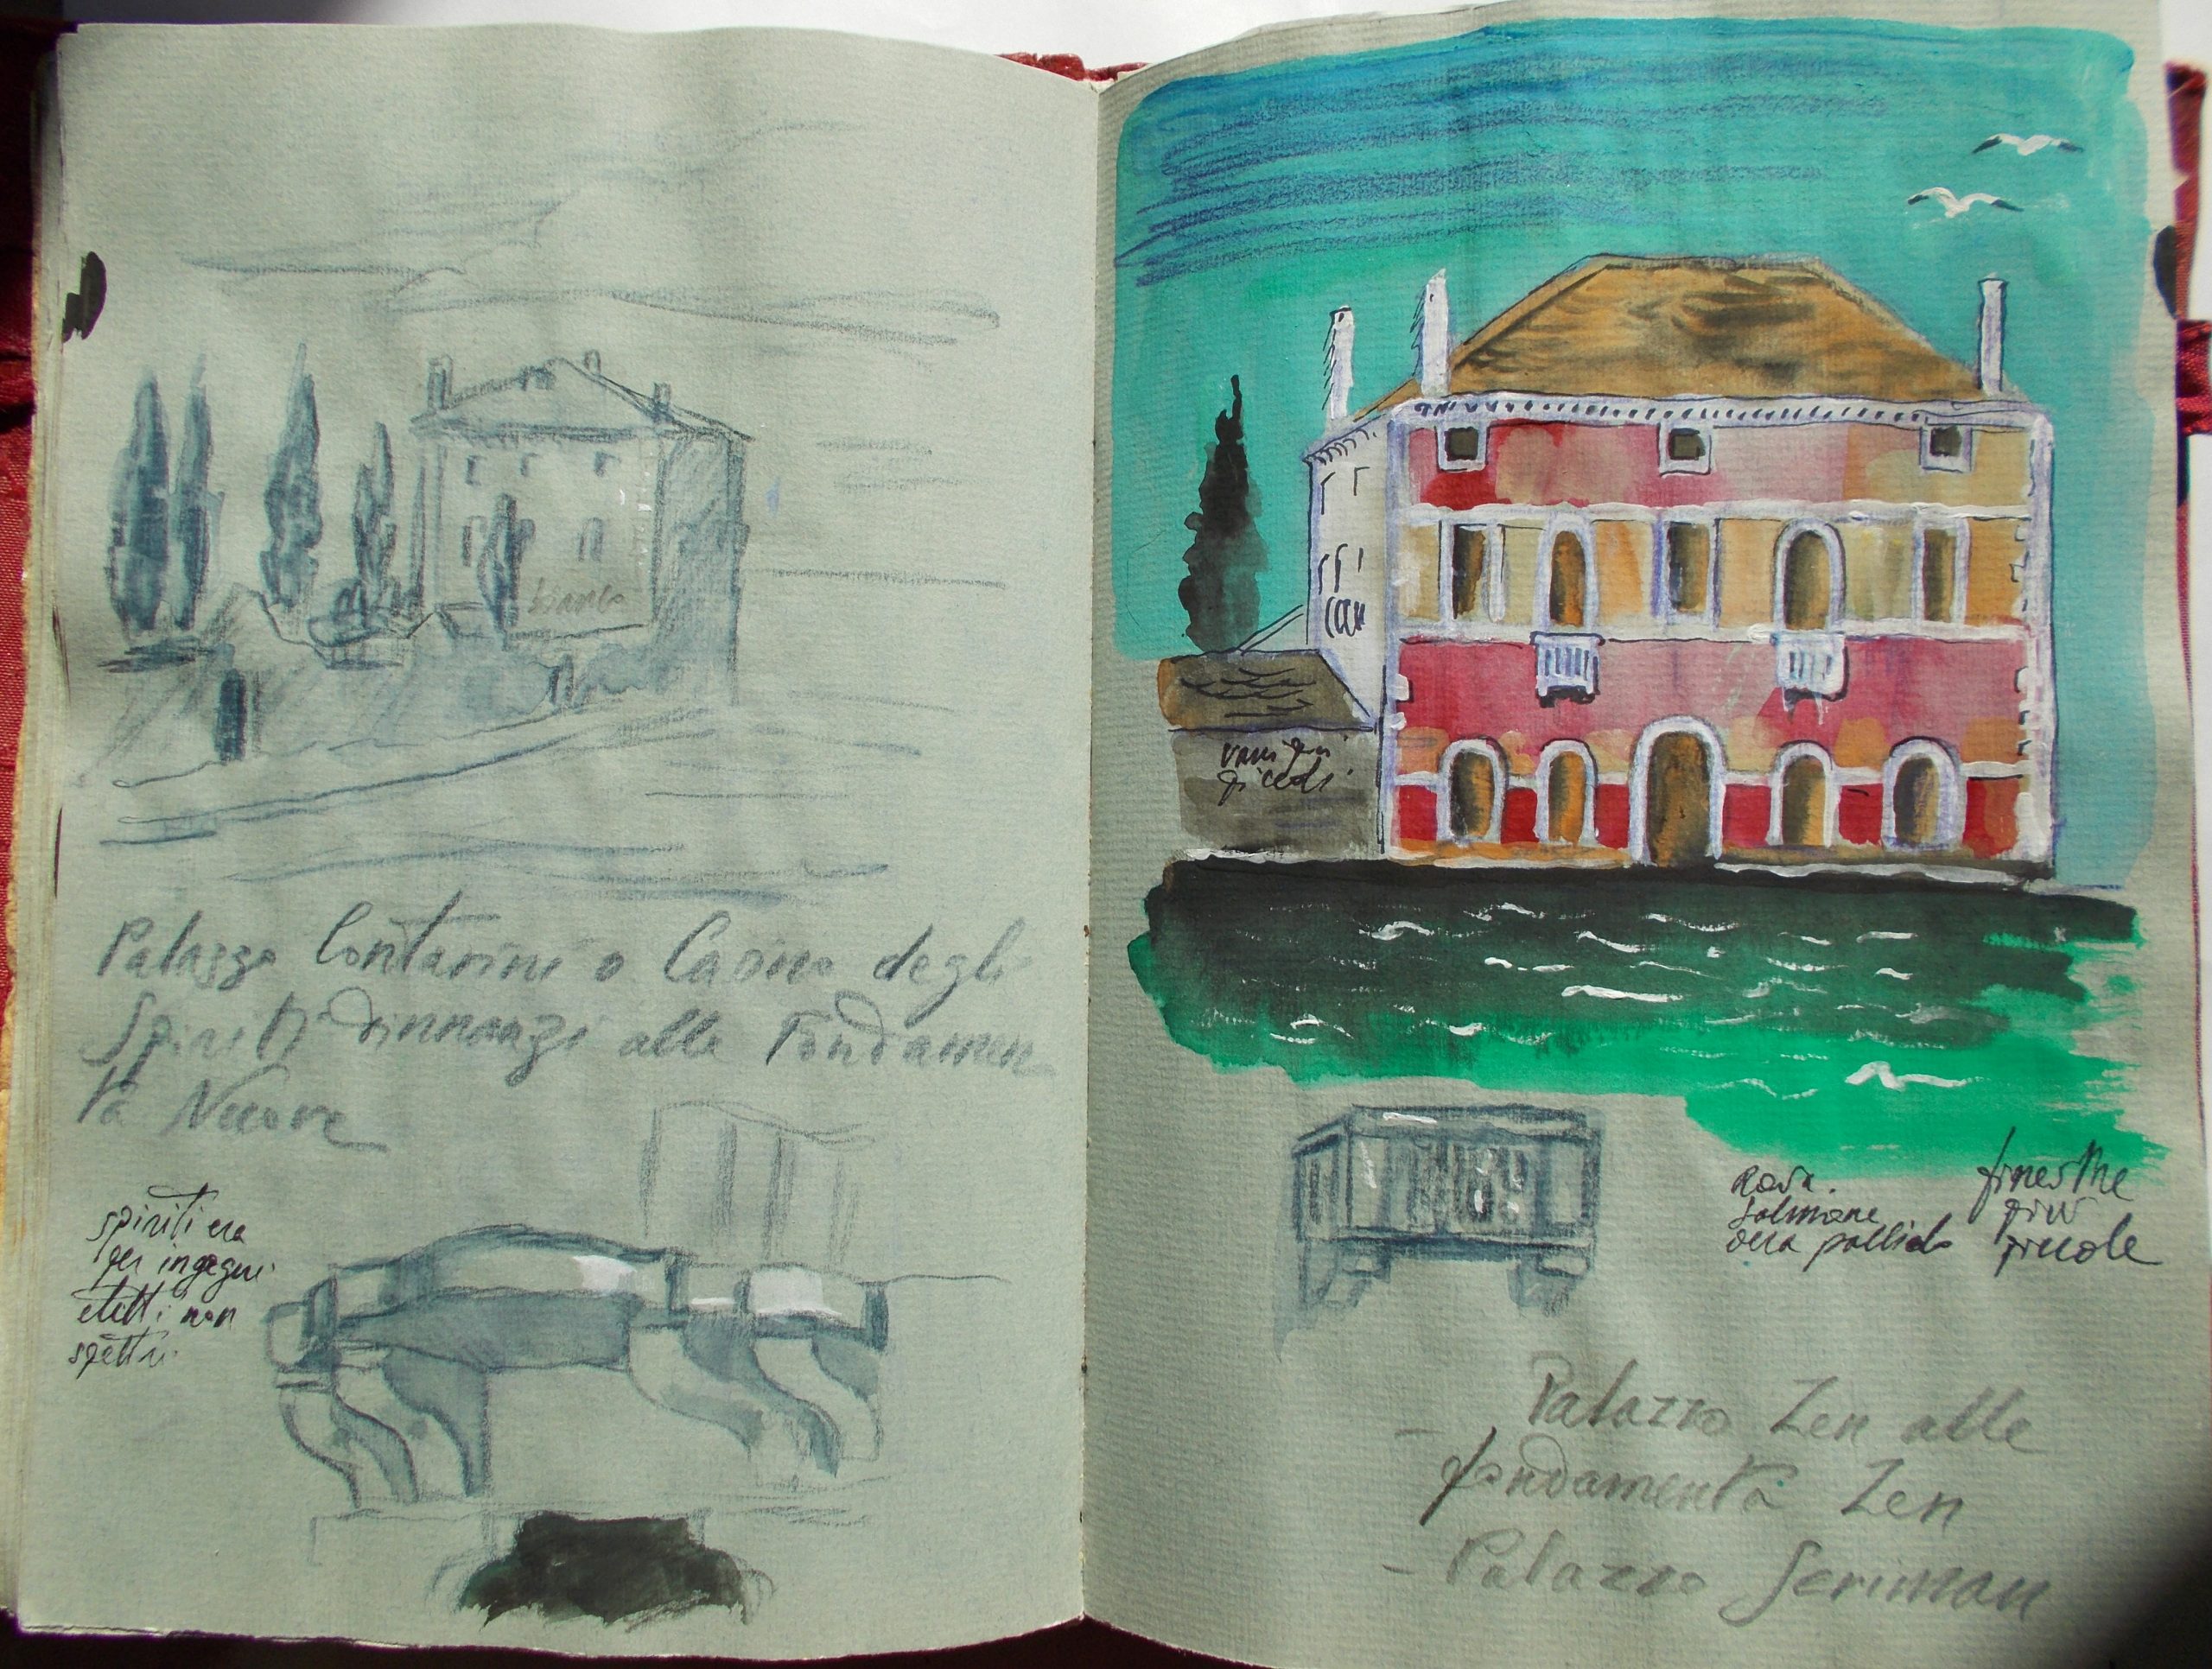 bianco
Palazzo Contarini o Casino degli
Spiriti dinnanzi alle Fondamen
ta Nuove
spiriti era
per ingegni
eletti non
spettri.
piccoli
Rosa.
Salmone
ocra pallido
finestre
più
piccole
Palazzo Zen alle
- fondamenta Zen
- Palazzo Seriman